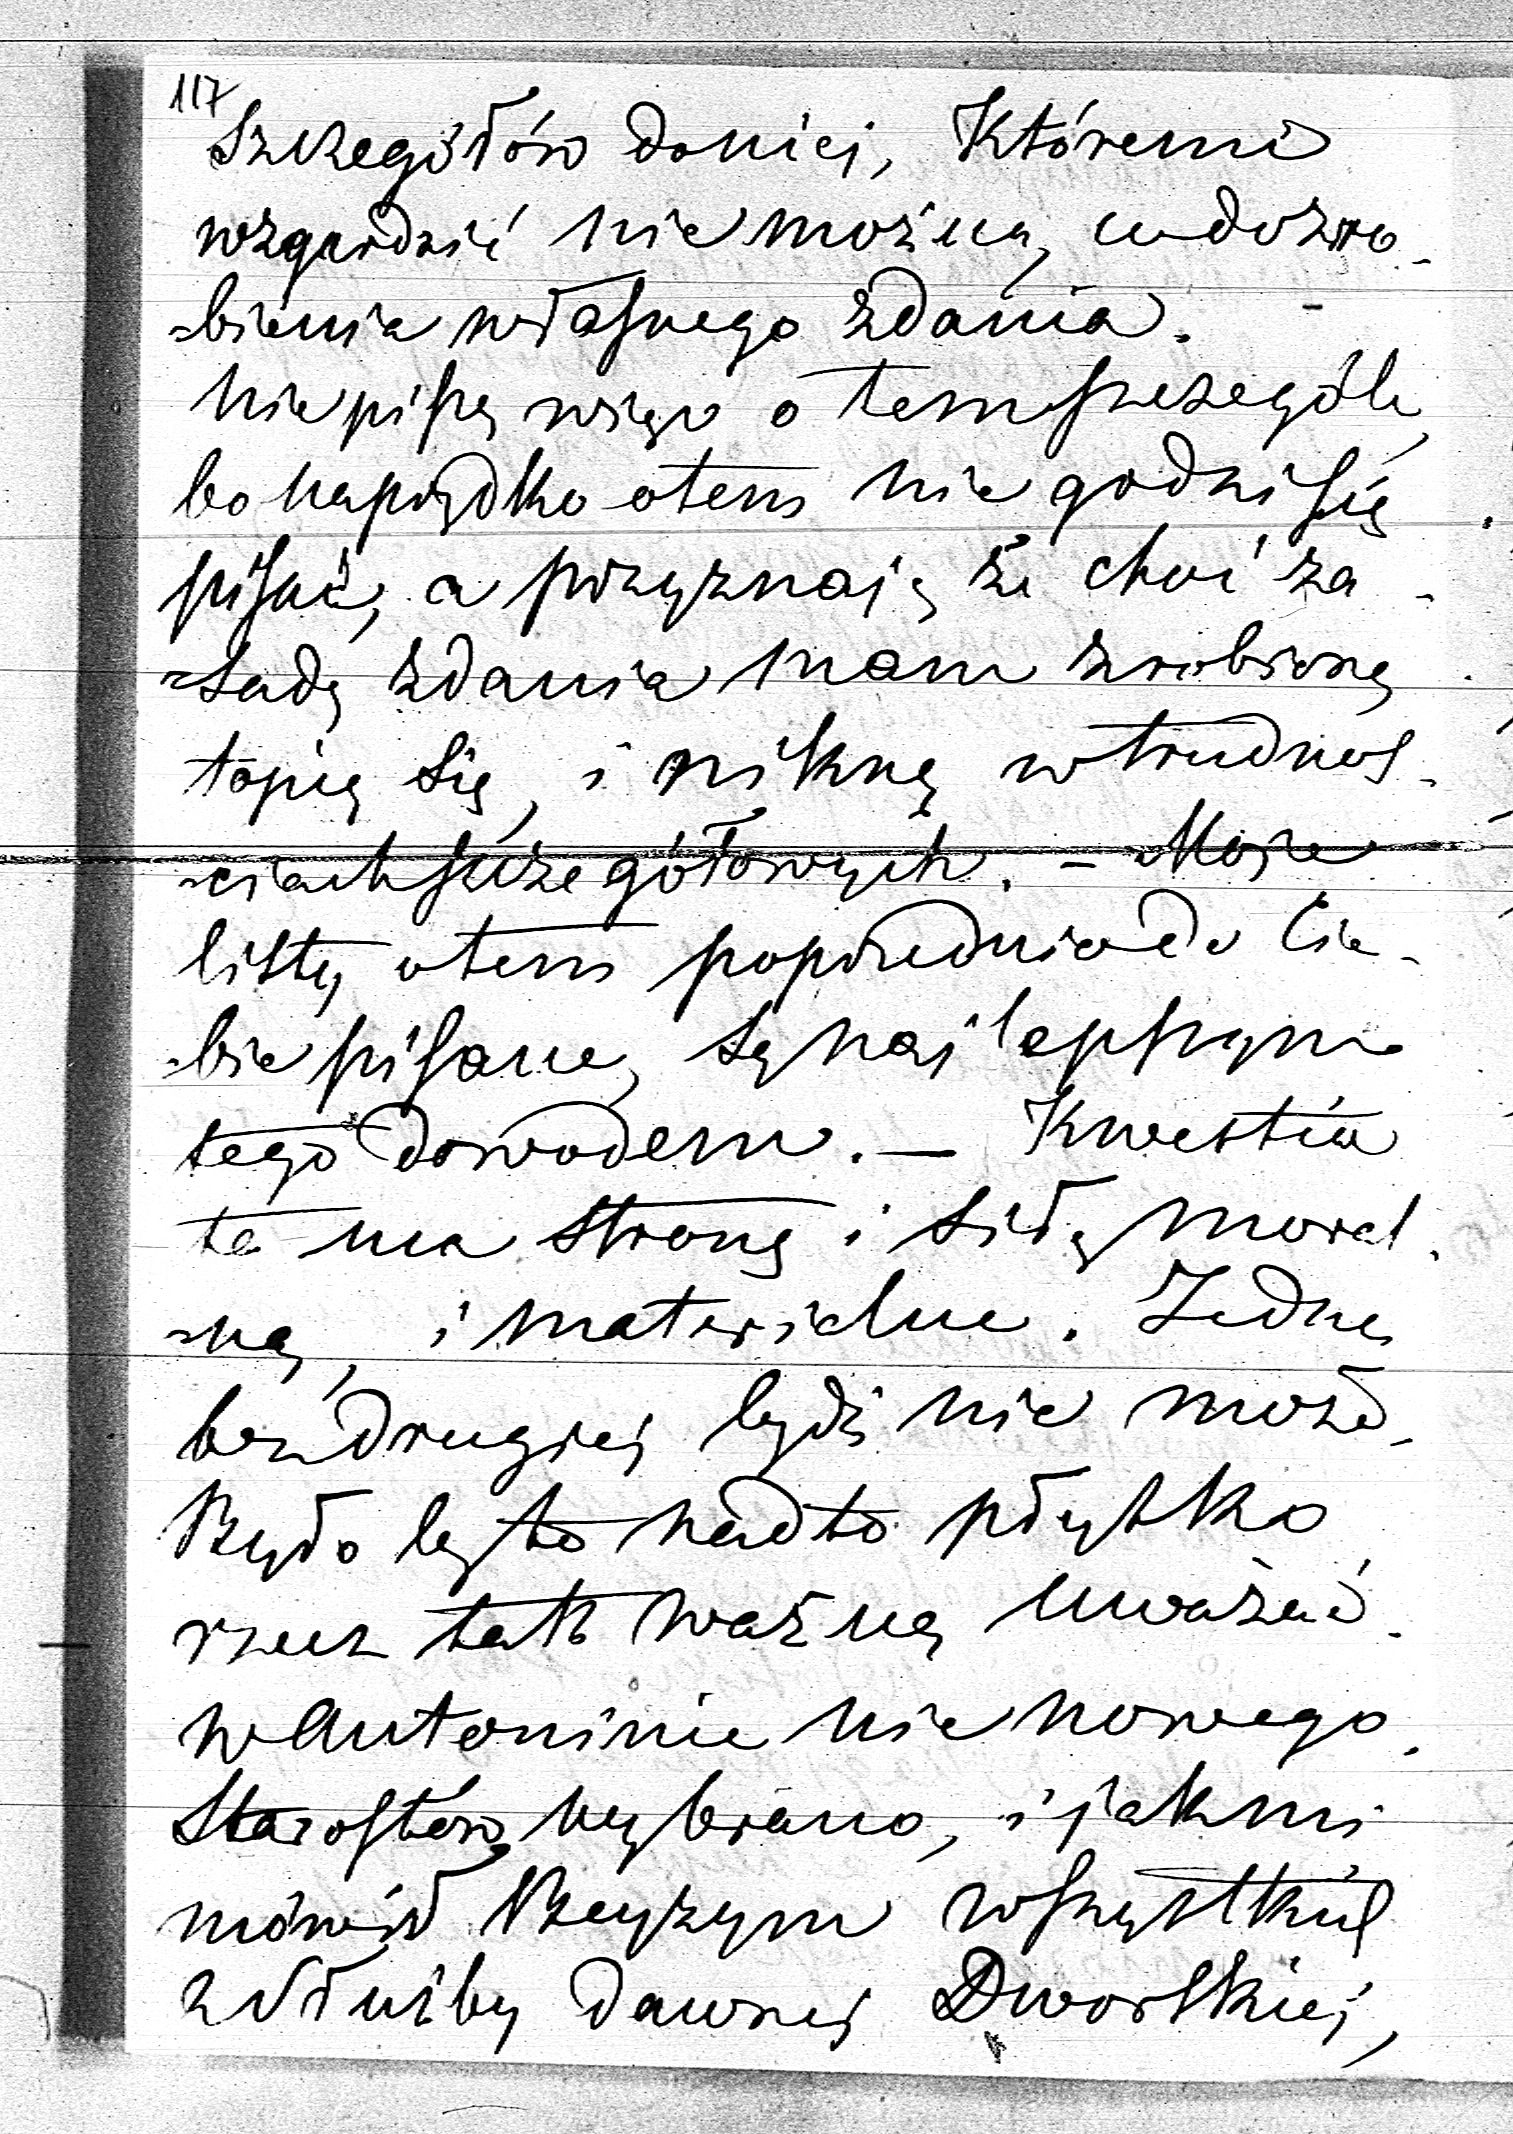 117
Szczegółów doniej, Któremi
wzgardzić nie można, u do zro-
-bienia własnego zdania.
Nie piszę więc o tem szczegóły,
bo naprędko o tem nie godzi się
pisać, a przyznaję że choć za-
-sadę zdania mam zrobioną
topię się, i niknę w trudnoś-
-ciach szczegółowych. – Moje
listy o tem poprzednio do Cie-
-bie pisane, są najlepszym
tego dowodem. – Kwestia
ta ma stronę i siłę moral-
-ną, i materialne. Jedna
bez drugiej bydź nie może,
Było by to nadto płytko
rzecz tak ważną uważać.
w Antoninie nic nowego.
Starostów wybrano, i jak mi
mówił Bzyzym wszystkich
z służby dawnej Dworskiej,